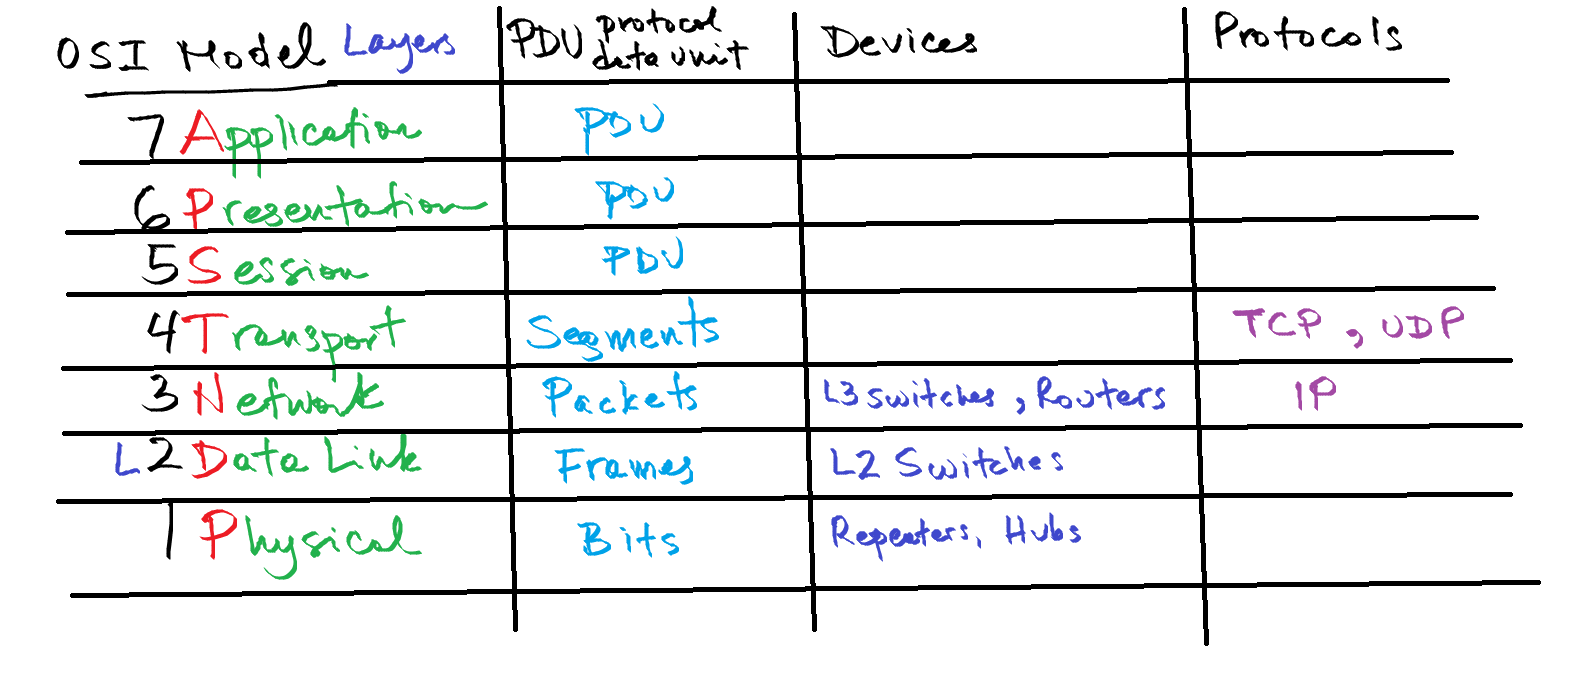 OSI Model Layers PDU protocol data unit Devices Protocols
7 Application PDU
6 Presentation PDU
5 Session PDU
4 Transport Segments TCP, UDP
3 Network Packets L3 switches, Routers IP
L2 Data Link Frames L2 Switches
1 Physical Bits Repeaters, Hubs